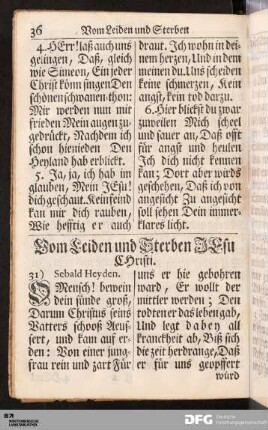 36 Vom Leiden und Sterben
4. HErr! laß auch uns
gelingen, Daß, gleich
wie Simeon, Ein jeder
Christ könn singen Den
schönen schwanen-thon:
Mir werden nun mit
frieden Mein augen zu-
gedrückt, Nachdem ich
schon hienieden Den
Heyland hab erblickt.
5. Ja, ja, ich hab im
glauben, Mein JEsu!
dich geschaut. Kein feind
kan mir dich rauben,
Wie hefftig er auch
draut. Ich wohn in dei-
nem herzen, Und in dem
meinen du. Uns scheiden
keine schmerzen, Kein
angst, kein tod darzu.
6. Hier blickst du zwar
zuweilen Mich scheel
und sauer an, Daß offt
für angst und heulen
Ich dich nicht kennen
kan; Dort aber wirds
geschehen, Daß ich von
angesicht Zu angesicht
soll sehen Dein immer-
klares licht.
Vom Leiden und Sterben JEsu
CHristi.
31) Sebald Heyden.
O Mensch! bewein
dein sünde groß,
Darum Christus seins
Vatters schooß Aeus-
sert, und kam auf er-
den: Von einer jung-
frau rein und zart Für
uns er hie gebohren
ward, Er wollt der
mittler werden; Den
todten er das leben gab,
Und legt dabey all
kranckheit ab, Biß sich
die zeit herdrange, Daß
er für uns geopffert
würd
DFG Deutsche
Forschungsgemeinschaft